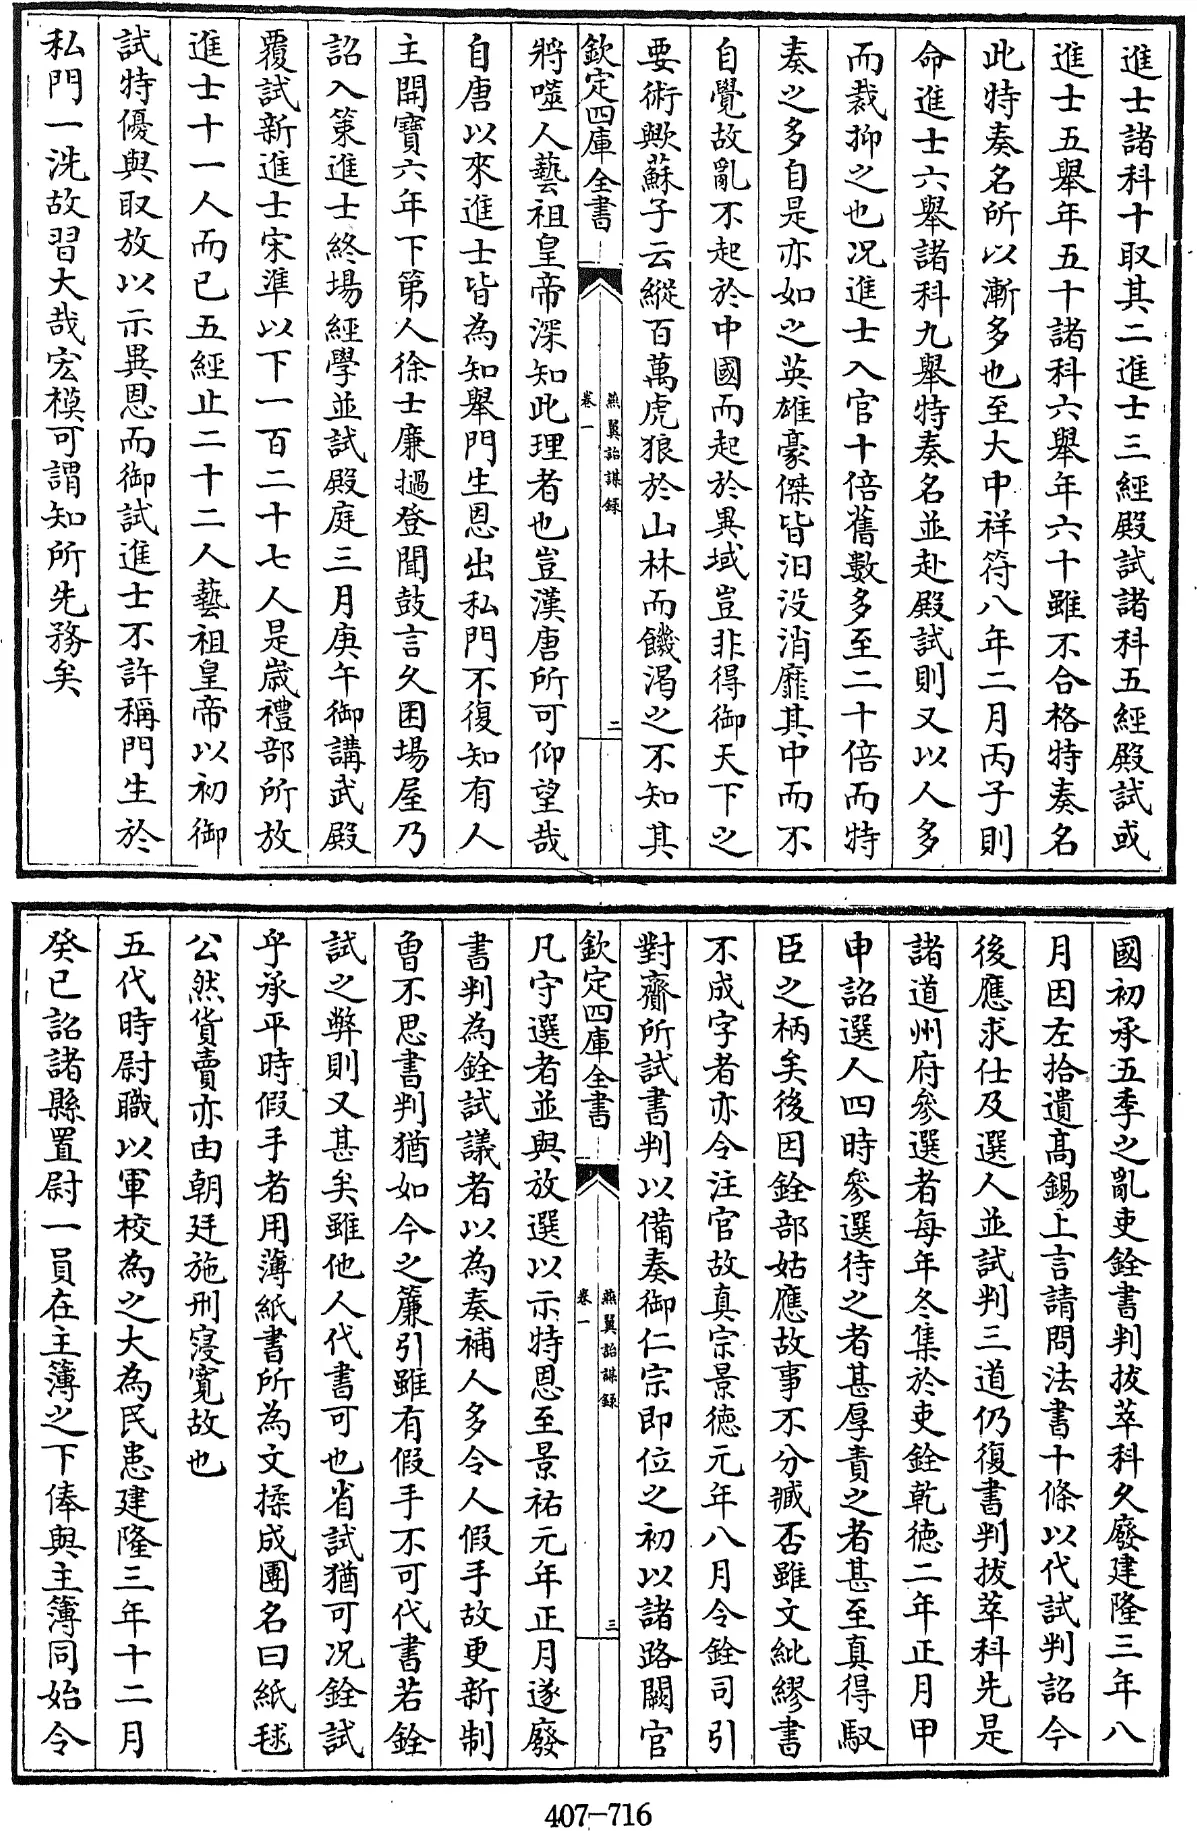 進士諸科十取其二進士三經殿試諸科五經殿試或
進士五舉年五十諸科六舉年六十雖不合格特奏名
此特奏名所以漸多也至大中祥符八年二月丙子則
命進士六舉諸科九舉特奏名並赴殿試則又以人多
而裁抑之也况進士入官十倍舊數多至二十倍而特
奏之多自是亦如之英雄豪傑皆汨没消靡其中而不
自覺故亂不起於中國而起於異域豈非得御天下之
要術歟蘇子云縱百萬虎狼於山林而饑渴之不知其
欽定四庫全書
燕翼詒謀録
卷一
二
將噬人藝祖皇帝深知此理者也豈漢唐所可仰望哉
自唐以來進士皆為知舉門生恩出私門不復知有人
主開寶六年下第人徐士廉撾登聞鼓言久困場屋乃
詔入策進士終場經學並試殿庭三月庚午御講武殿
覆試新進士宋準以下一百二十七人是歲禮部所放
進士十一人而已五經止二十二人藝祖皇帝以初御
試特優與取放以示異恩而御試進士不許稱門生於
私門一洗故習大哉宏模可謂知所先務矣
國初承五季之亂吏銓書判拔萃科久廢建隆三年八
月因左拾遺高錫上言請問法書十條以代試判詔今
後應求仕及選人並試判三道仍復書判拔萃科先是
諸道州府參選者每年冬集於吏銓乾德二年正月甲
申詔選人四時參選待之者甚厚責之者甚至真得馭
臣之柄矣後因銓部姑應故事不分臧否雖文紕繆書
不成字者亦令注官故真宗景德元年八月令銓司引
對齎所試書判以備奏御仁宗即位之初以諸路闕官
欽定四庫全書
燕翼詒謀録
卷一
三
凡守選者並與放選以示特恩至景祐元年正月遂廢
書判為銓試議者以為奏補人多令人假手故更新制
曾不思書判猶如今之簾引雖有假手不可代書若銓
試之弊則又甚矣雖他人代書可也省試猶可况銓試
乎承平時假手者用薄紙書所為文揉成團名曰紙毬
公然貨賣亦由朝廷施刑寖寛故也
五代時尉職以軍校為之大為民患建隆三年十二月
癸巳詔諸縣置尉一員在主簿之下俸與主簿同始令
407-716